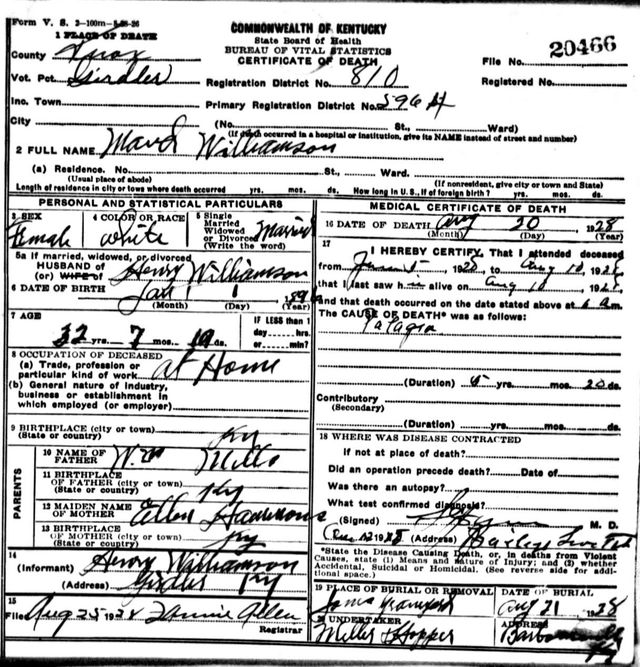 Form V. S. 2-100m-5-28-26
COMMONWEALTH OF KENTUCKY
State Board of Health
BUREAU OF VITAL STATISTICS
CERTIFICATE OF DEATH
File No. 20466
Registered No.
1 PLACE OF DEATH
County Knox
Vot. Pct. Girdler
Registration District No. 810
Inc. Town
Primary Registration District No.
City (No. St., Ward)
(If death occurred in a hospital or institution, give its NAME instead of street and number)
2 FULL NAME Maud Williamson
(a) Residence. No. St., Ward.
(Usual place of abode) (If nonresident, give city or town and State)
Length of residence in city or town where death occurred yrs. mos. ds. How long in U. S., if of foreign birth? yrs. mos. ds.
PERSONAL AND STATISTICAL PARTICULARS
3 SEX Female
4 COLOR OR RACE White
5 Single Married Widowed or Divorced (Write the word) Married
5a If married, widowed, or divorced
HUSBAND OF
(or) WIFE OF Henry Williamson
6 DATE OF BIRTH Jan 1
(Month) (Day) (Year)
7 AGE 32 yrs. 7 mos. 19 ds.
IF LESS than 1 day hrs. or min?
8 OCCUPATION OF DECEASED
(a) Trade, profession or particular kind of work at Home
(b) General nature of industry, business or establishment in which employed (or employer)
9 BIRTHPLACE (city or town)
(State or country) Ky
PARENTS
10 NAME OF FATHER Wm Mills
11 BIRTHPLACE OF FATHER (city or town)
(State or country) Ky
12 MAIDEN NAME OF MOTHER Ellen
13 BIRTHPLACE OF MOTHER (city or town)
(State or country) Ky
14
(Informant) Henry Williamson
(Address) Girdler Ky
15
Filed Aug 25 1928 Fannie Allen
Registrar
MEDICAL CERTIFICATE OF DEATH
16 DATE OF DEATH Aug 20 1928
(Month) (Day) (Year)
17
I HEREBY CERTIFY, That I attended deceased
from 1928 to Aug 10, 1928
that I last saw h alive on Aug 10, 1928
and that death occurred on the date stated above at m.
The CAUSE OF DEATH* was as follows:
(Duration) yrs. mos. 20 ds.
Contributory
(Secondary)
(Duration) yrs. mos. ds.
18 WHERE WAS DISEASE CONTRACTED
If not at place of death?
Did an operation precede death? Date of
Was there an autopsy?
What test confirmed diagnosis?
(Signed) M. D.
(Address)
*State the Disease Causing Death, or, in deaths from Violent Causes, state (1) Means and Nature of Injury; and (2) whether Accidental, Suicidal or Homicidal. (See reverse side for additional space.)
19 PLACE OF BURIAL OR REMOVAL
DATE OF BURIAL
Aug 21 1928
20 UNDERTAKER
Miller & Hopper
ADDRESS
Barbourville Ky